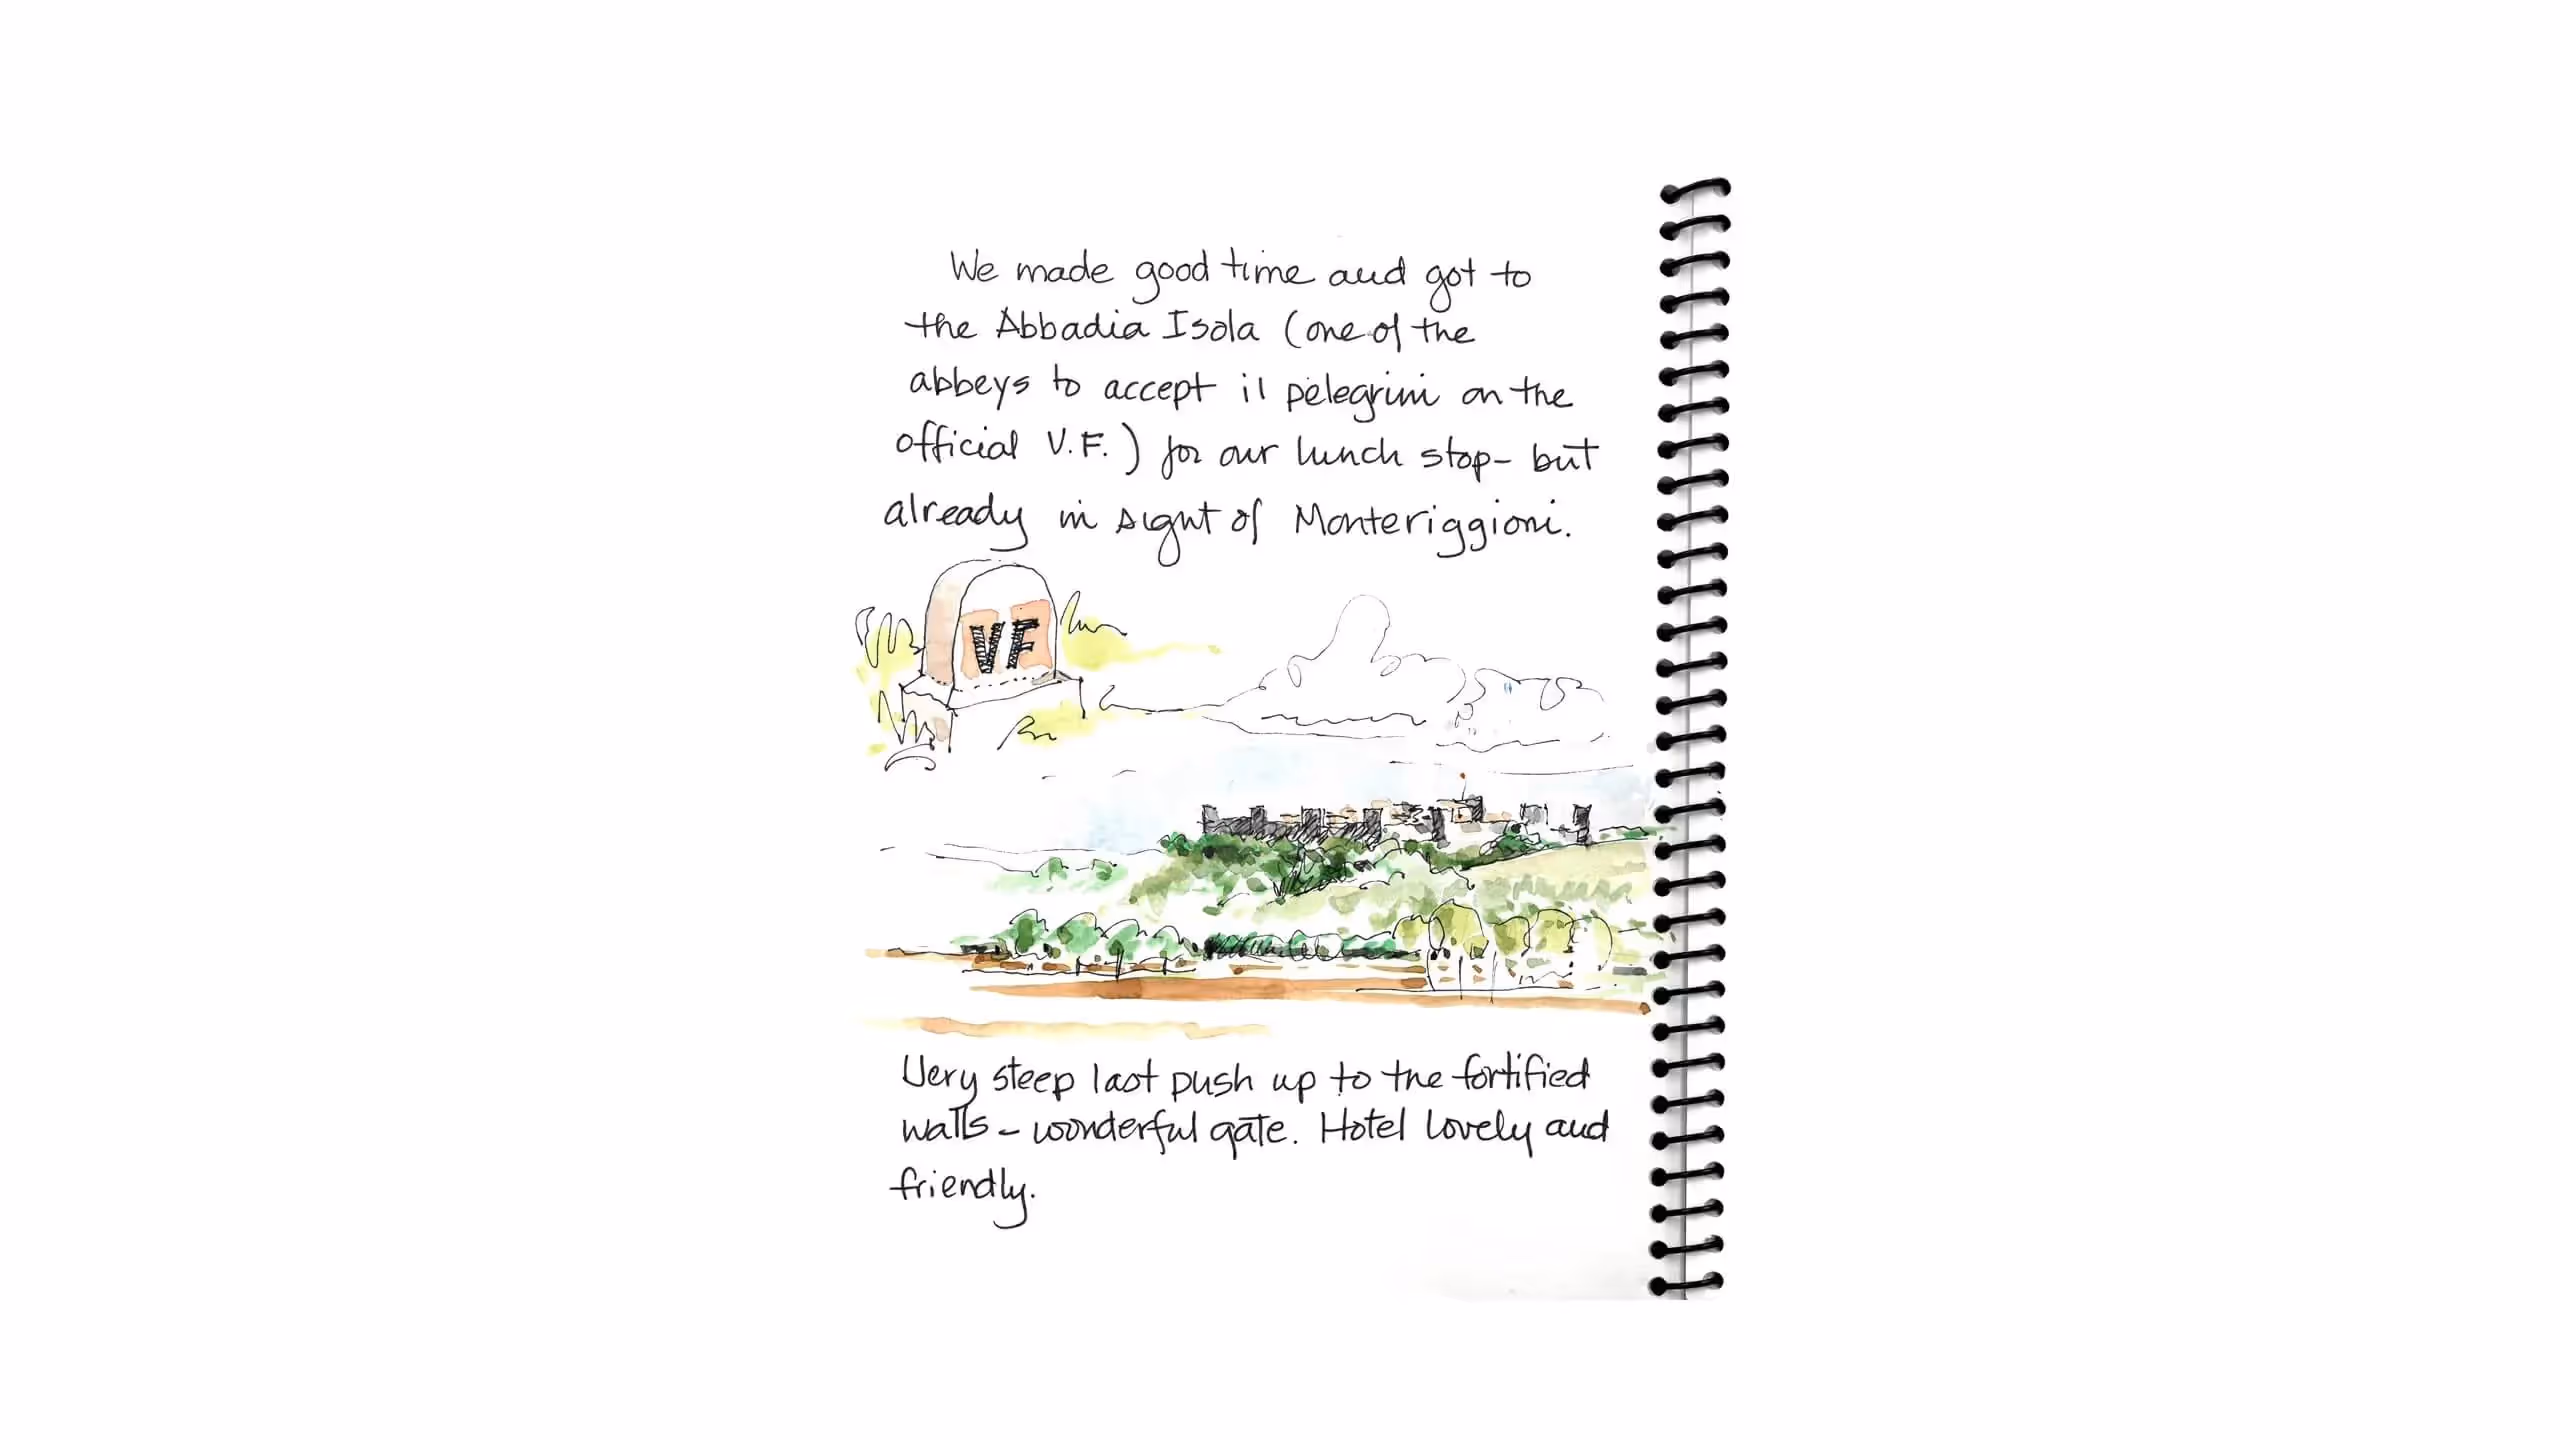 We made good time and got to
the Abbadia Isola (one of the
abbeys to accept il pelegrini on the
official V.F.) for our lunch stop- but
already in sight of Monteriggioni.
VF
Very steep last push up to the fortified
walls - wonderful gate. Hotel lovely and
friendly.